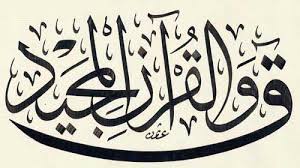 ق وَالْقُرْآنِ الْمَجِيدِ